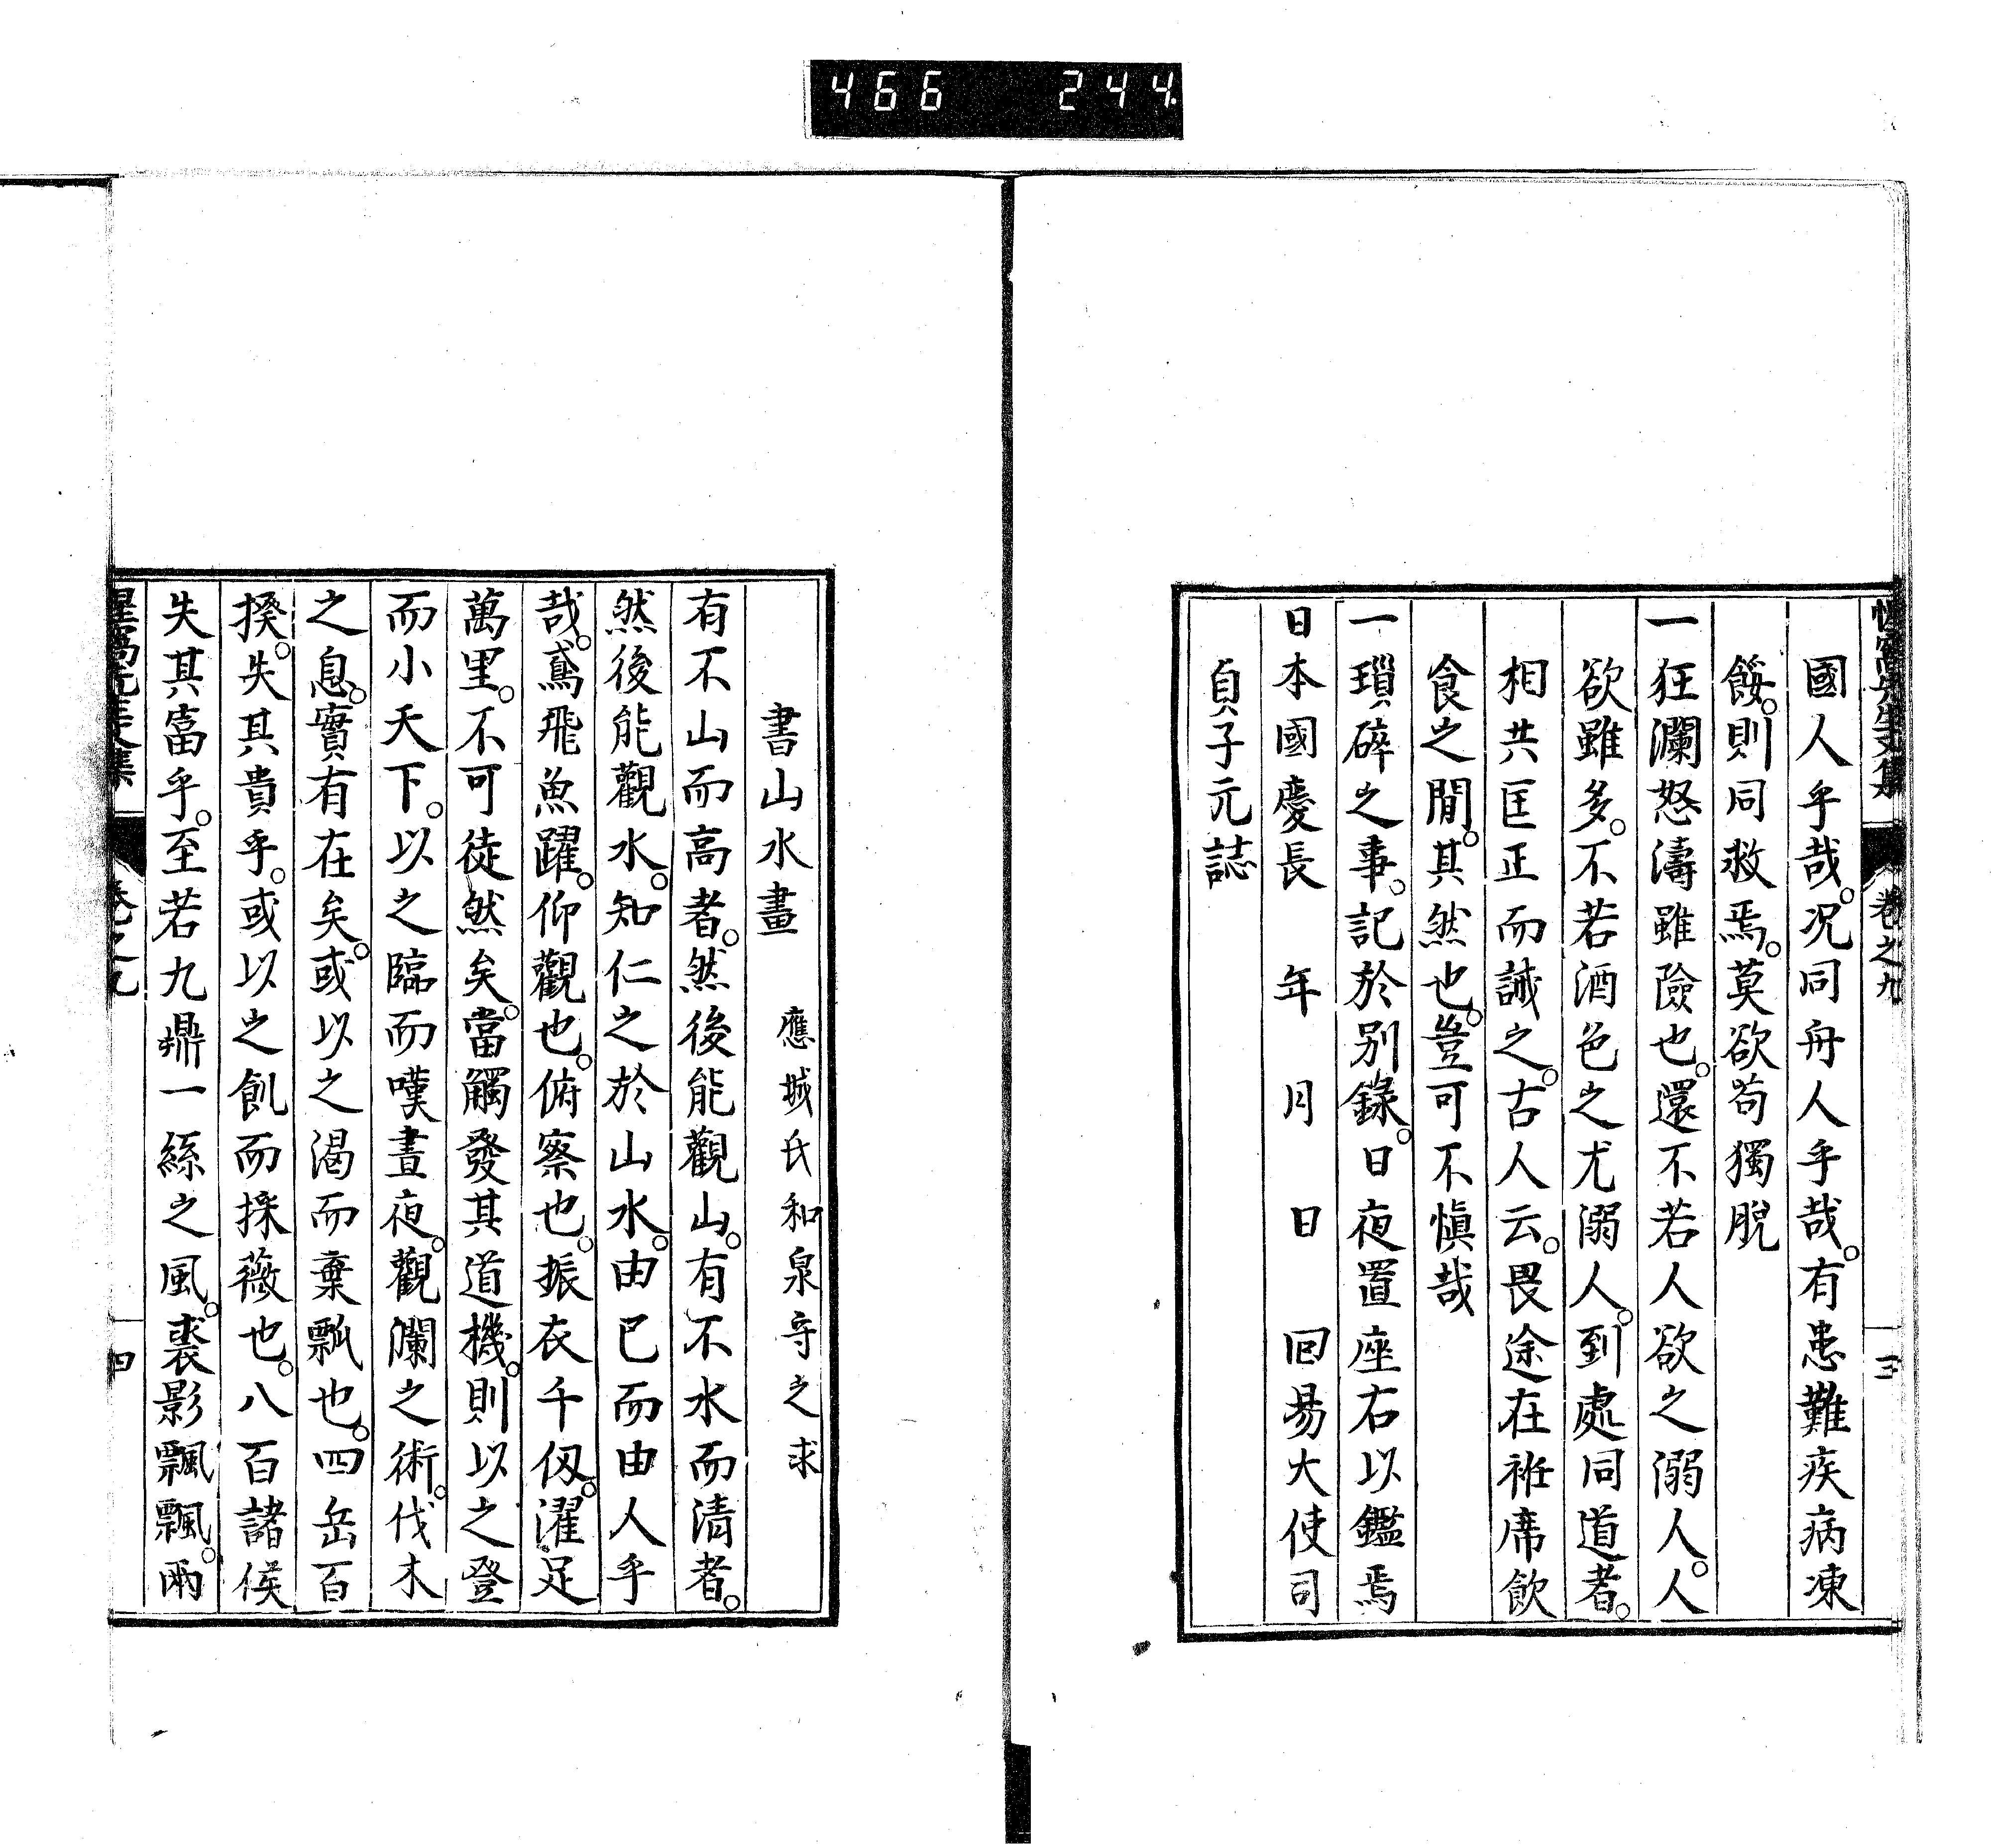 466 244.
惺窩先生文集 卷之九 三
國人乎哉。况同舟人乎哉。有患難疾病凍
餒。則同救焉。莫欲苟獨脫
一狂瀾怒濤雖險也。還不若人欲之溺人。人
欲雖多。不若酒色之尤溺人。到處同道者。
相共匡正而誡之。古人云。畏途在袵席飲
食之間。其然也。豈可不慎哉
一瑣碎之事。記於別錄。日夜置座右以鑑焉
日本國慶長 年 月 日 回易大使司
貞子元誌
書山水畫 應城氏和泉守之求
有不山而高者。然後能觀山。有不水而清者。
然後能觀水。知仁之於山水。由己而由人乎
哉。鳶飛魚躍。仰觀也。俯察也。振衣千仭。濯足
萬里。不可徒然矣。當觸發其道機。則以之登
而小天下。以之臨而嘆晝夜。觀瀾之術。伐木
之息。實有在矣。或以之渴而棄瓢也。四岳百
揆。失其貴乎。或以之飢而採薇也。八百諸侯
失其富乎。至若九鼎一絲之風。裘影飄飄。兩
惺窩先生文集 卷之九 四